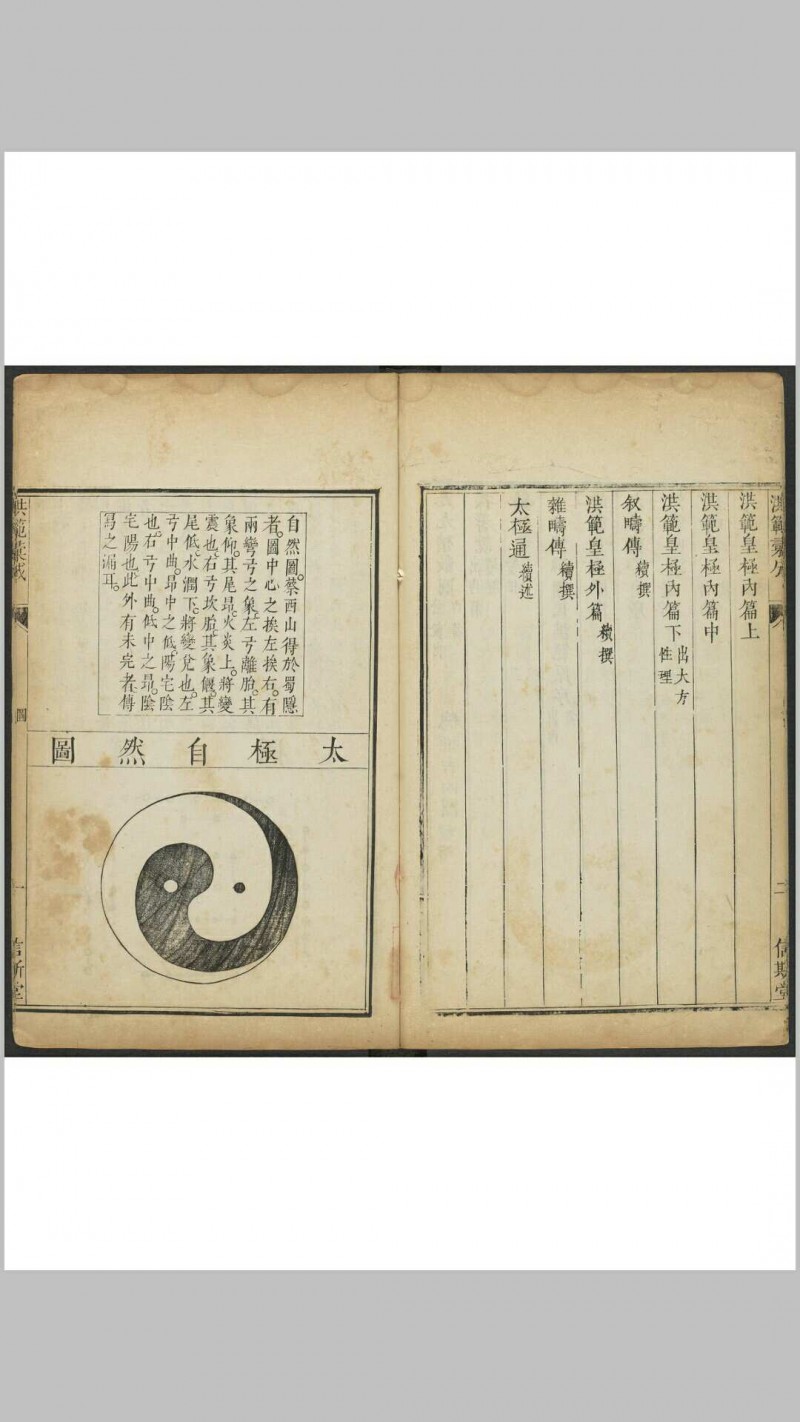 洪範皇極內篇上
洪範皇極內篇中
洪範皇極內篇下 出大方性理
叙疇傳 續撰
洪範皇極外篇 續撰
雜疇傳 續撰
太極通 續述
二
信斯堂
自然圖。蔡西山得於蜀隱
者。圖中心之挨左挨右。有
兩彎兮之象。左兮離胎。其
象仰。其尾昻。火炎上。將變
震也。右兮坎胎。其象偃。其
尾低。水潤下。將變兌也。左
兮中曲。昻中之低。陽宅陰
也。右兮中曲。低中之昻。陰
宅陽也。此外有未完者。傳
寫之漏耳。
太極自然圖
圖
一